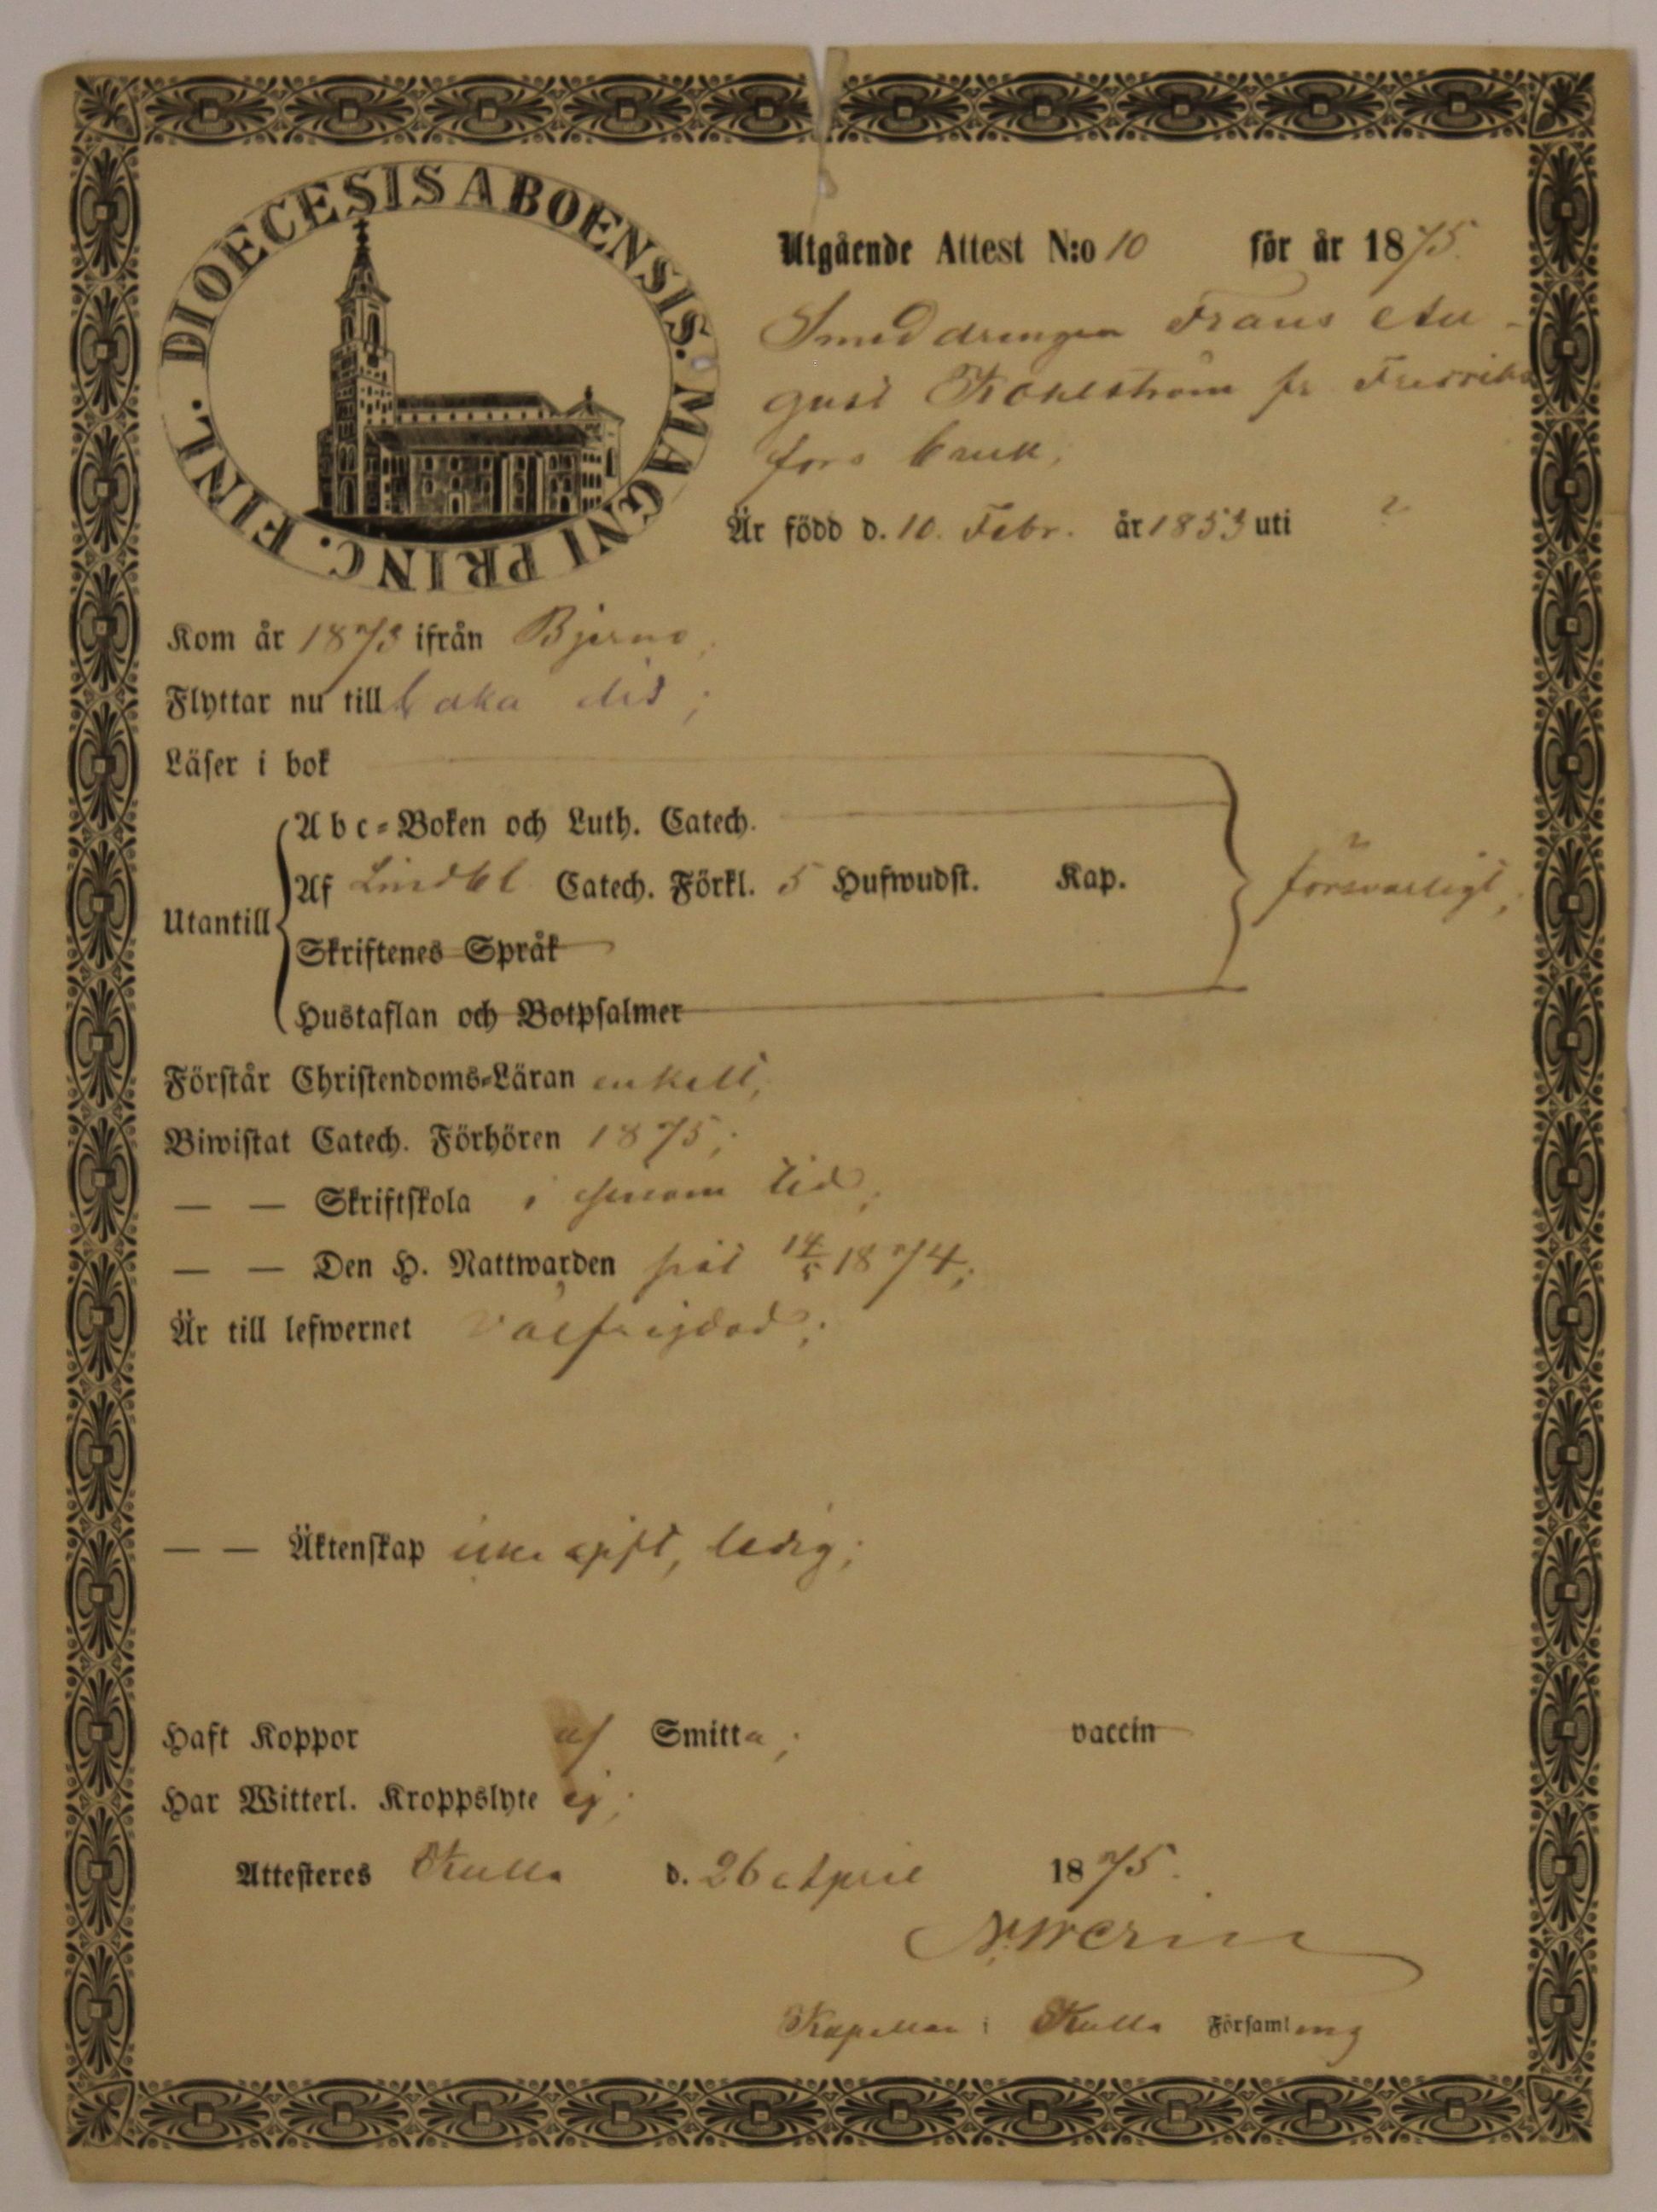 DIOECESIS ABOENSIS. MAGNI PRINC. FINL.
Utgående Attest N:o 10 för år 1875.
Smeddrengen Frans Au-
gust Kohlström fr Fredriks
fors bruk,
Är född d. 10. Febr. år 1853 uti ?
Kom år 1873 ifrån Bjerno,
Flyttar nu till baka dit;
Läser i bok
Abc-Boken och Luth. Catech.
Af Lindbl Catech. Förkl. 5 Hufwudst. Kap.
Utantill
försvarligt;
Skriftenes Språk
Hustaflan och Botpsalmer
Förstår Christendoms-Läran enkelt;
Biwistat Catech. Förhören 1875;
— — Skriftskola i sinom tid;
— — Den H. Nattwarden sist 14/5 1874;
Är till lefwernet välfrejdad;
— — Äktenskap icke gift, ledig;
Haft Koppor af Smitta; vaccin
Har Witterl. Kroppslyte ej;
Attesteres Kulla d. 26 April 1875.
Kapellan i Kulla Församling